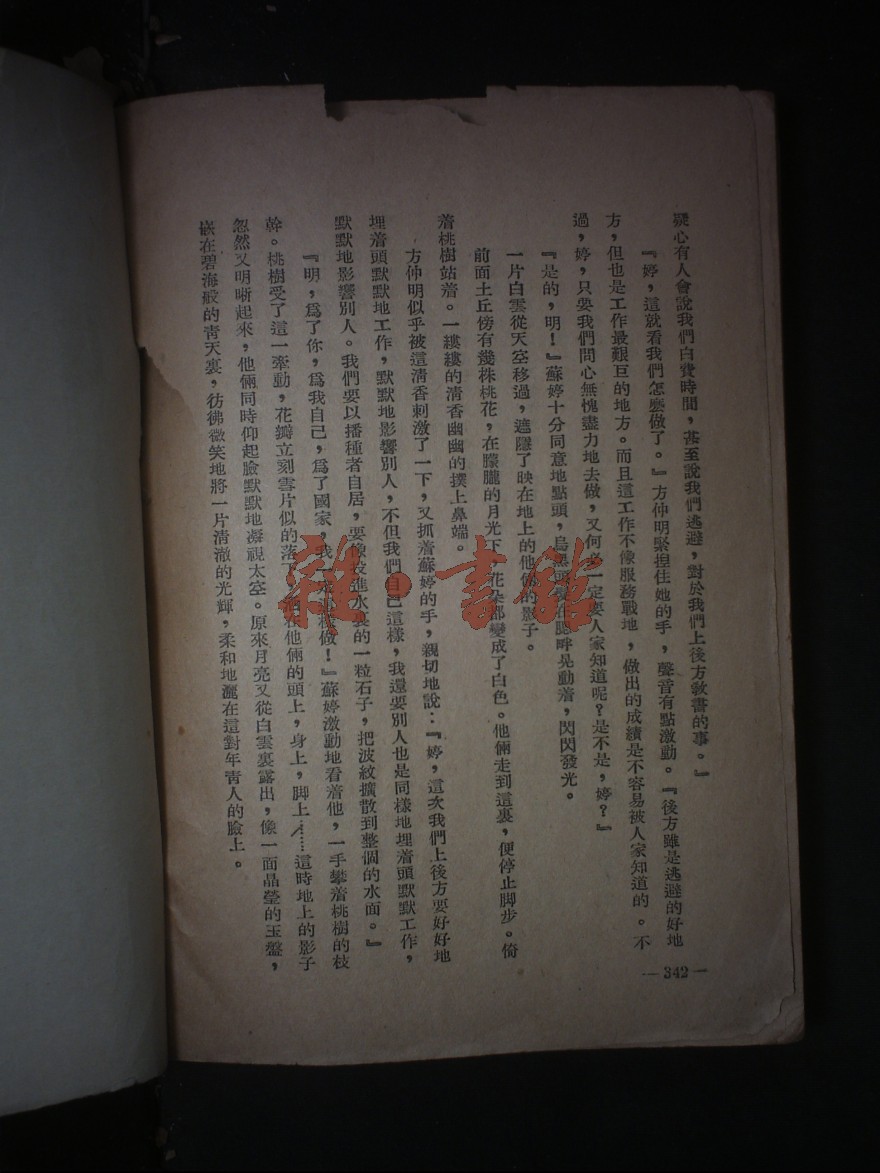 疑心有人會說我們白費時間，甚至說我們逃避，對於我們上後方教書的事。』
『婷，這就看我們怎麽做了。』方仲明緊捏住她的手，聲音有點激動。『後方雖是逃避的好地
方，但也是工作最艱巨的地方。而且這工作不像服務戰地，做出的成績是不容易被人家知道的。不
過，婷，只要我們問心無愧盡力地去做，又何必一定要人家知道呢？是不是，婷？』
『是的，明！』蘇婷十分同意地點頭，烏黑頭髮在腮畔晃動着，閃閃發光。
一片白雲從天空移過，遮隱了映在地上的他倆的影子。
前面土丘傍有幾株桃花，在朦朧的月光下，花朵都變成了白色。他倆走到這裏，便停止脚步。倚
着桃樹站着。一縷縷的清香幽幽的撲上鼻端。
方仲明似乎被這清香刺激了一下，又抓着蘇婷的手，親切地說：『婷，這次我們上後方要好好地
埋着頭默默地工作，默默地影響別人，不但我們自己這樣，我還要別人也是同樣地埋着頭默默工作，
默默地影響別人。我們要以播種者自居，要像投進水裏的一粒石子，把波紋擴散到整個的水面。』
『明，爲了你，爲我自己，爲了國家，我一定這樣做！』蘇婷激動地看着他，一手攀着桃樹的枝
幹。桃樹受了這一牽動，花瓣立刻雪片似的落下，洒在他倆的頭上，身上，脚上……這時地上的影子
忽然又明晰起來，他倆同時仰起臉默默地凝視太空。原來月亮又從白雲裏露出，像一面晶瑩的玉盤，
嵌在碧海般的靑天裏，彷彿微笑地將一片清澈的光輝，柔和地灑在這對年靑人的臉上。
— 342 —
雜·書館